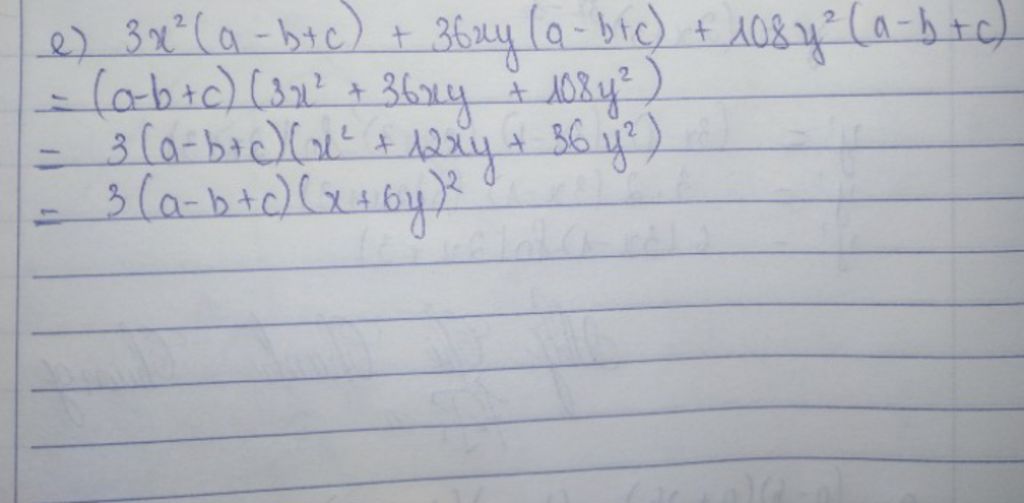 e) 3x²(a-b+c) + 36xy(a-b+c) + 108y²(a-b+c)
= (a-b+c)(3x² + 36xy + 108y²)
= 3(a-b+c)(x² + 12xy + 36y²)
= 3(a-b+c)(x+6y)²